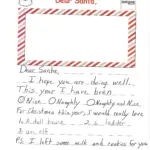 Dear Santa,
Dear Santa,
I hope you are doing well.
This year I have been
Nice Naughty Naughty and Nice
For Christmas this year, I would really love
1. A doll house 2. a ladder
3. an elf
P.S. I left some milk and cookies for you